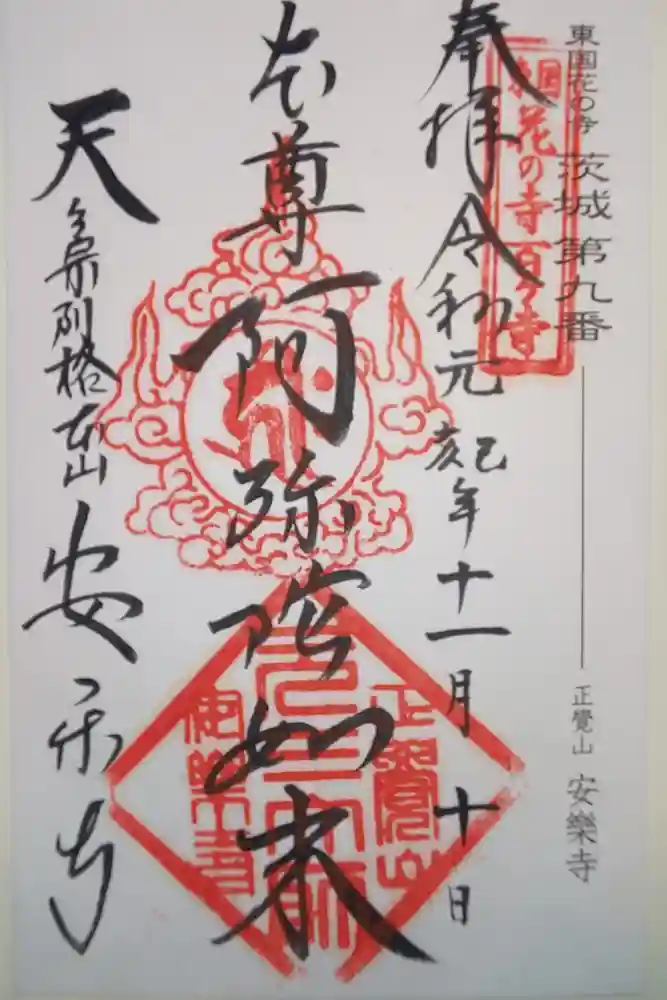 東国花の寺 茨城 第九番
正覺山 安樂寺
花の寺百ヶ寺
奉拝 令和元 己亥 年十一月 十日
本尊 阿弥陀如来
天台宗別格本山 安楽寺